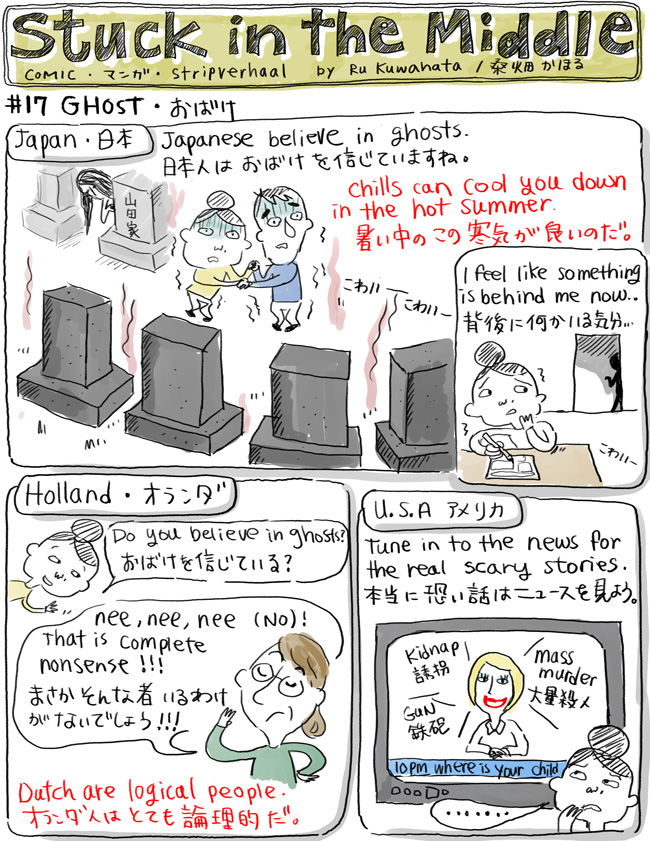 Stuck in the Middle
COMIC・マンガ・Stripverhaal by Ru Kuwahata / 桑畑かほる
#17 GHOST・おばけ
Japan・日本
Japanese believe in ghosts.
日本人は おばけ を信じていますね。
山田家
chills can cool you down
in the hot summer.
暑い中のこの寒気が良いのだ。
こわいー
こわいー
I feel like something
is behind me now..
背後に何かいる気分...
こわいー
Holland・オランダ
Do you believe in ghosts?
おばけを信じている?
nee, nee, nee (No)!
That is complete
nonsense !!!
まさかそんな者 いるわけ
がないでしょう!!!
Dutch are logical people.
オランダ人はとても論理的だ。
U.S.A アメリカ
Tune in to the news for
the real scary stories.
本当に恐い話はニュースを見よう。
Kidnap
誘拐
mass
murder
大量殺人
GUN
鉄砲
10pm where is your child
.......